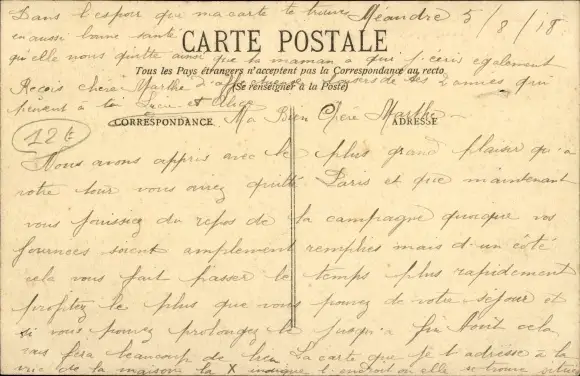 Dans l'espoir que ma carte te trouve Méandre 5/8/18
en aussi bonne santé
qu'elle nous quitte ainsi que ta maman a qui j'écris également
CARTE POSTALE
Tous les Pays étrangers n'acceptent pas la Correspondance au recto
(Se renseigner à la Poste)
Reçois chère Marthe d'affectueux baisers de tes 2 amies qui
pensent à toi Lucie et Alice
CORRESPONDANCE
ADRESSE
Ma Bien Chère Marthe
Nous avons appris avec le plus grand plaisir qu'a
votre tour vous aviez quitté Paris et que maintenant
vous jouissiez du repos de la campagne quoique vos
journées soient amplement remplies mais d'un côté
cela vous fait passer le temps plus rapidement
profitez le plus que vous pouvez de votre séjour et
si vous pouvez prolongez le jusqu'a fin Août cela
vous fera beaucoup de bien La carte que je t'adresse à la
vue de la maison la X indique l'endroit ou elle se trouve située